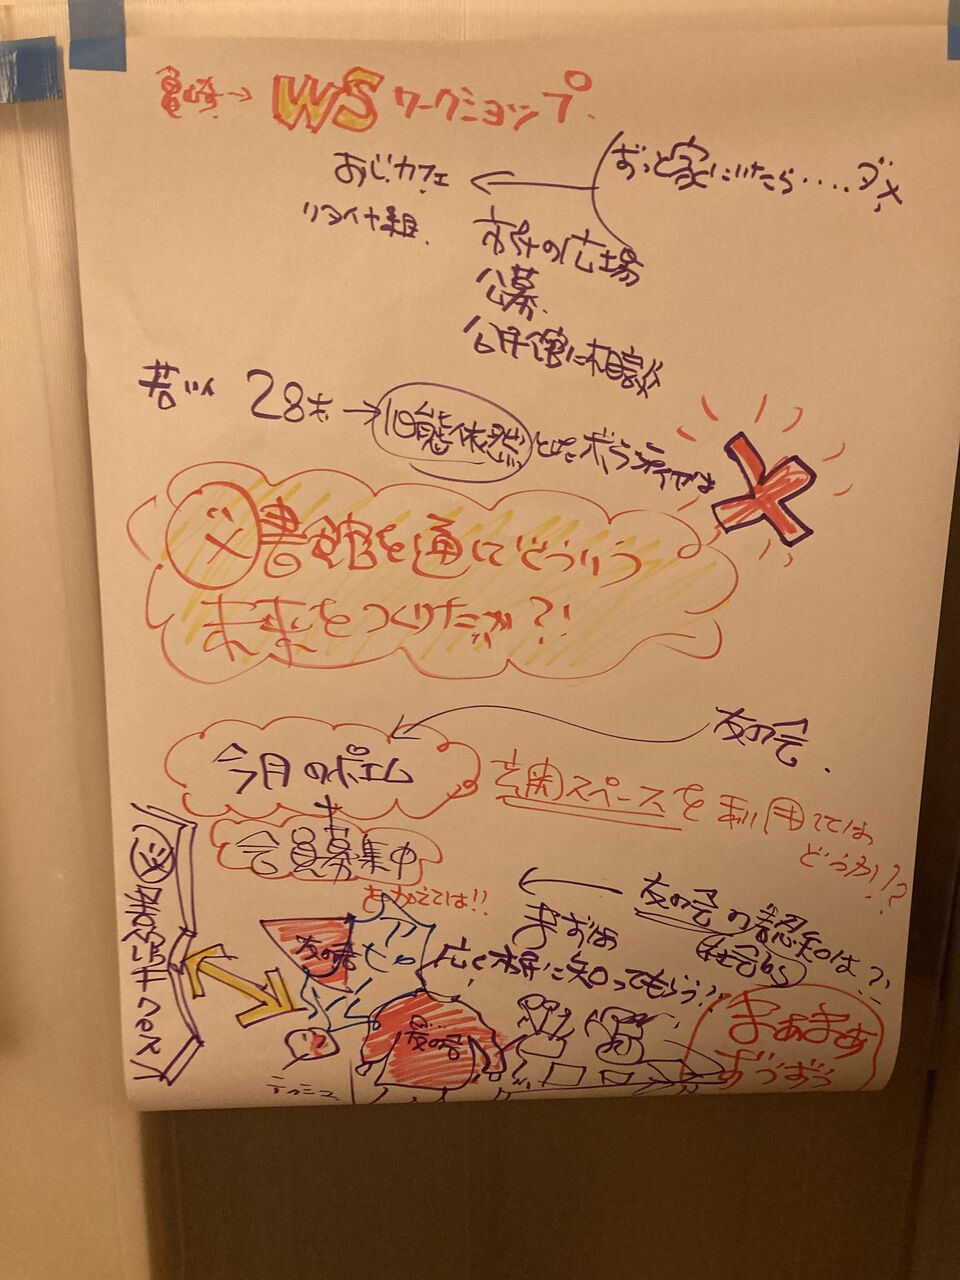 亀崎→ WS ワークショップ.
ずっと家にいたら....ダメ
おじカフェ
リタイヤ組.
市井の広場
公募.
公民館に相談
若い人 28才→旧態依然とした ボランティアは
図書館を通してどういう
未来をつくりたいか?!
友の会.
今月のポエム
空間スペースを利用しては
どうか!!?
会員募集中
を加えては!!
友の会の認知は??
まずは
社会の
広く市民に知ってもらう!?
友の会
まぁまぁ
ずうずう